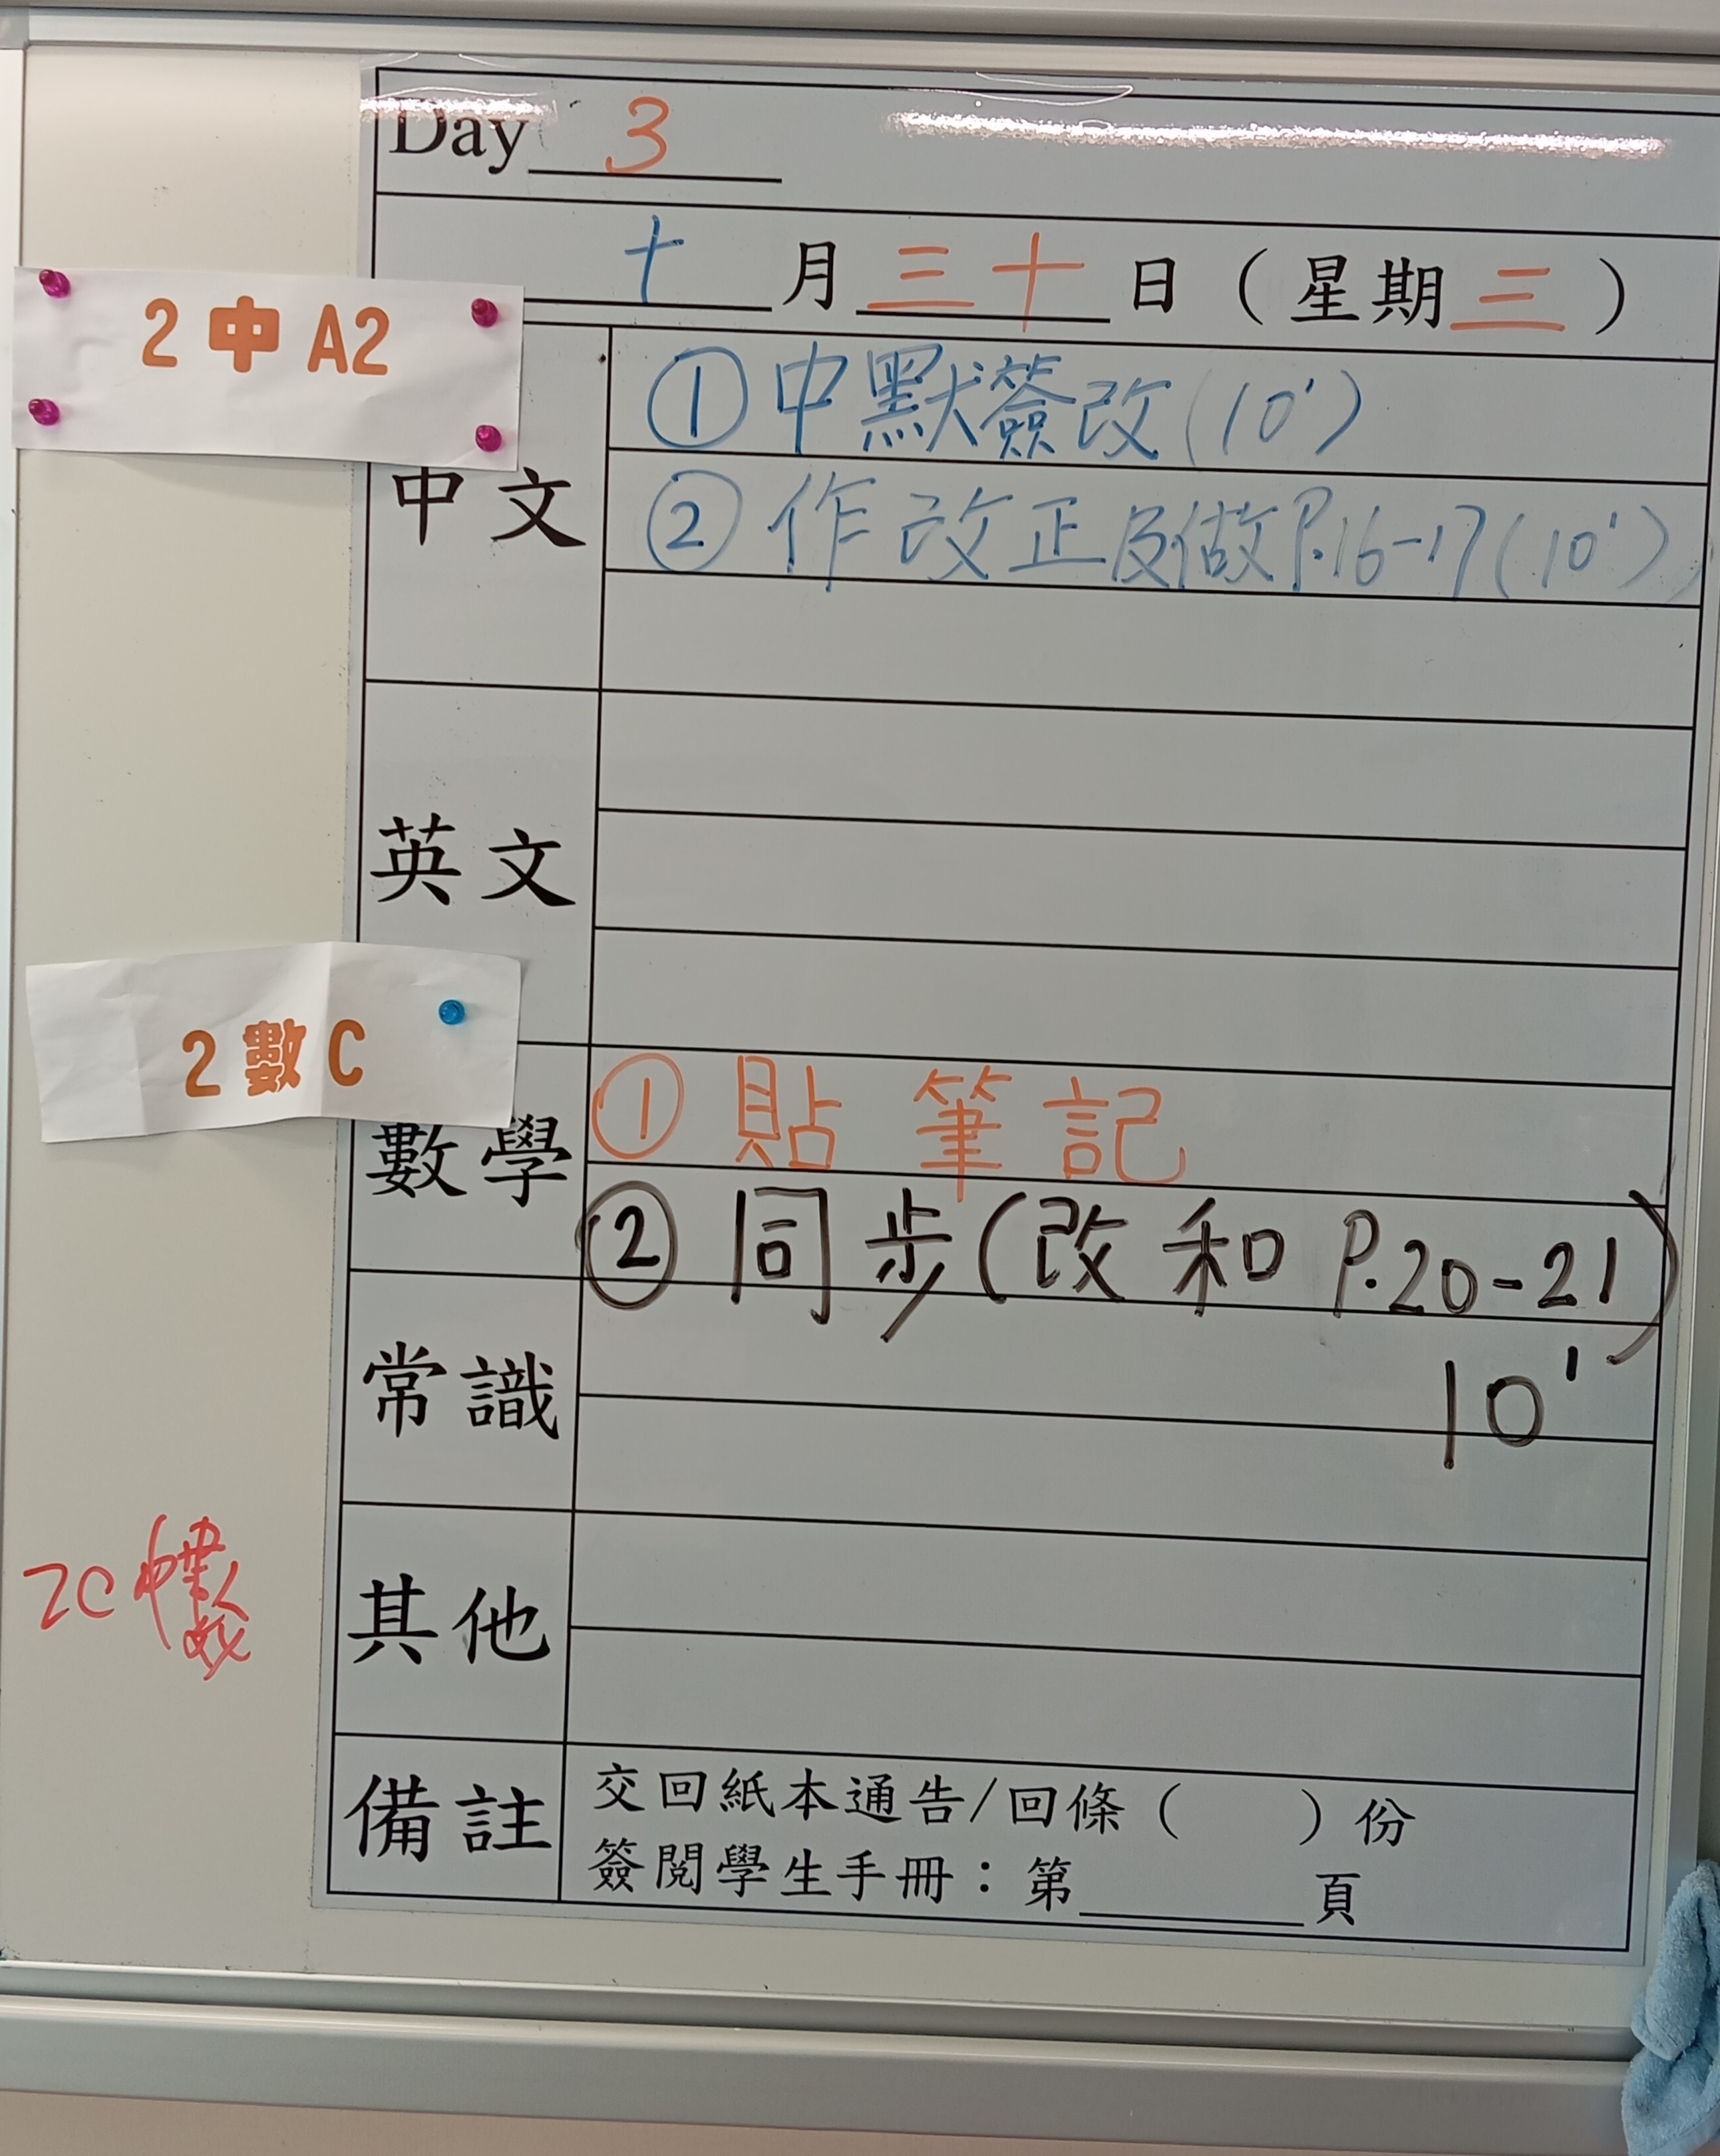 Day 3
十月三十日（星期三）
2 中 A2
中文
①中默簽改(10')
②作改正及做P.16-17(10')
英文
2 數 C
數學
①貼筆記
②同步(改和P.20-21)
10'
常識
其他
2C
備註
交回紙本通告/回條（ ）份
簽閱學生手冊：第______頁